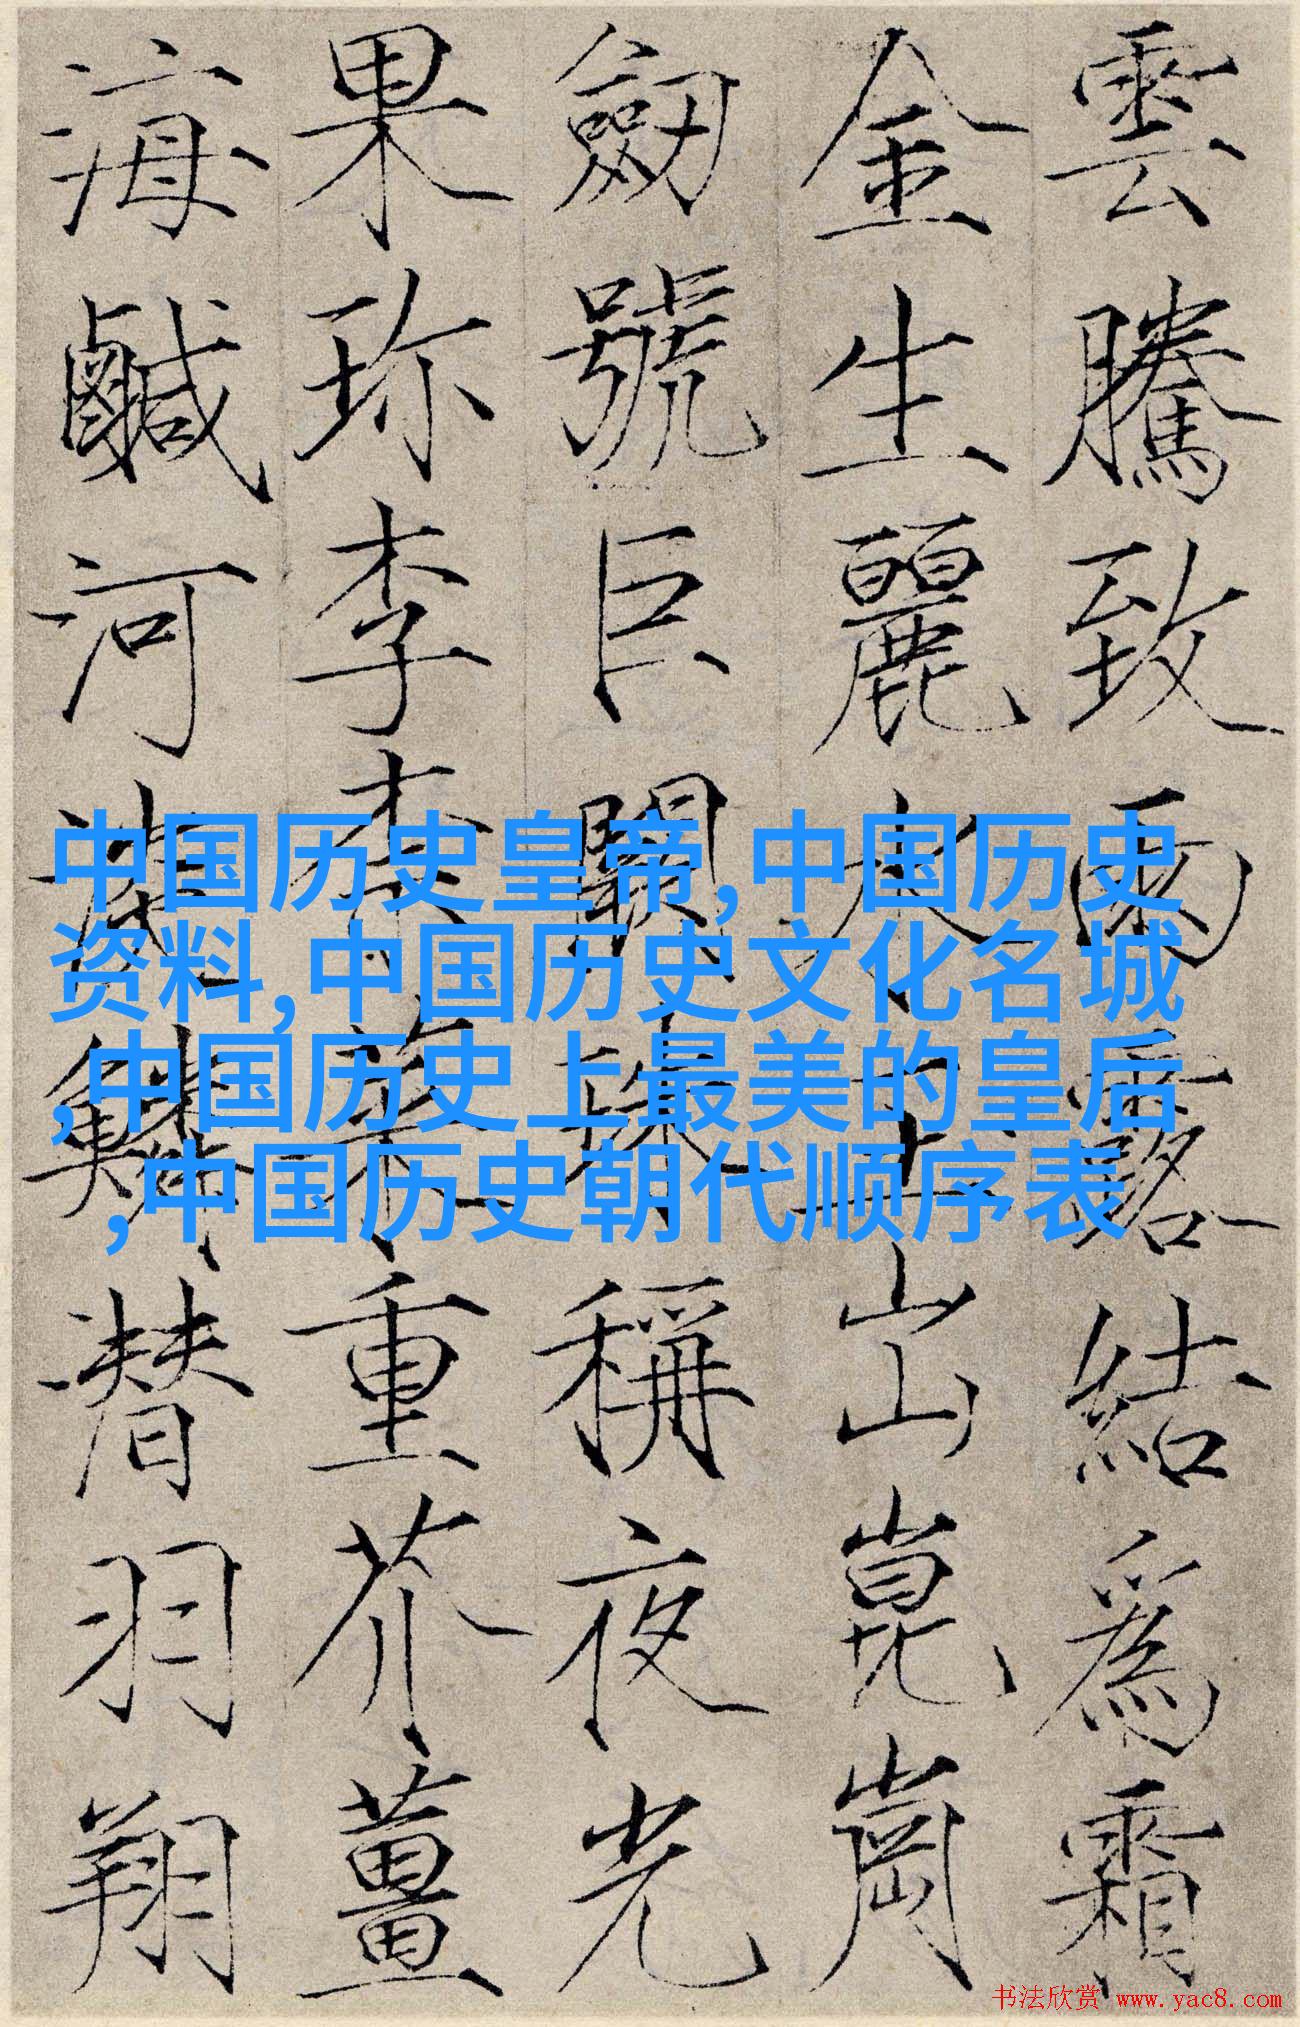 雲騰致雨露結爲霜
金生麗水玉出崑崗
劒號巨闕珠稱夜光
果珎李柰菜重芥薑
海鹹河淡鱗潜羽翔
中国历史皇帝,中国历史
资料,中国历史文化名城
,中国历史上最美的皇后
,中国历史朝代顺序表
书法欣赏 www.yac8.com